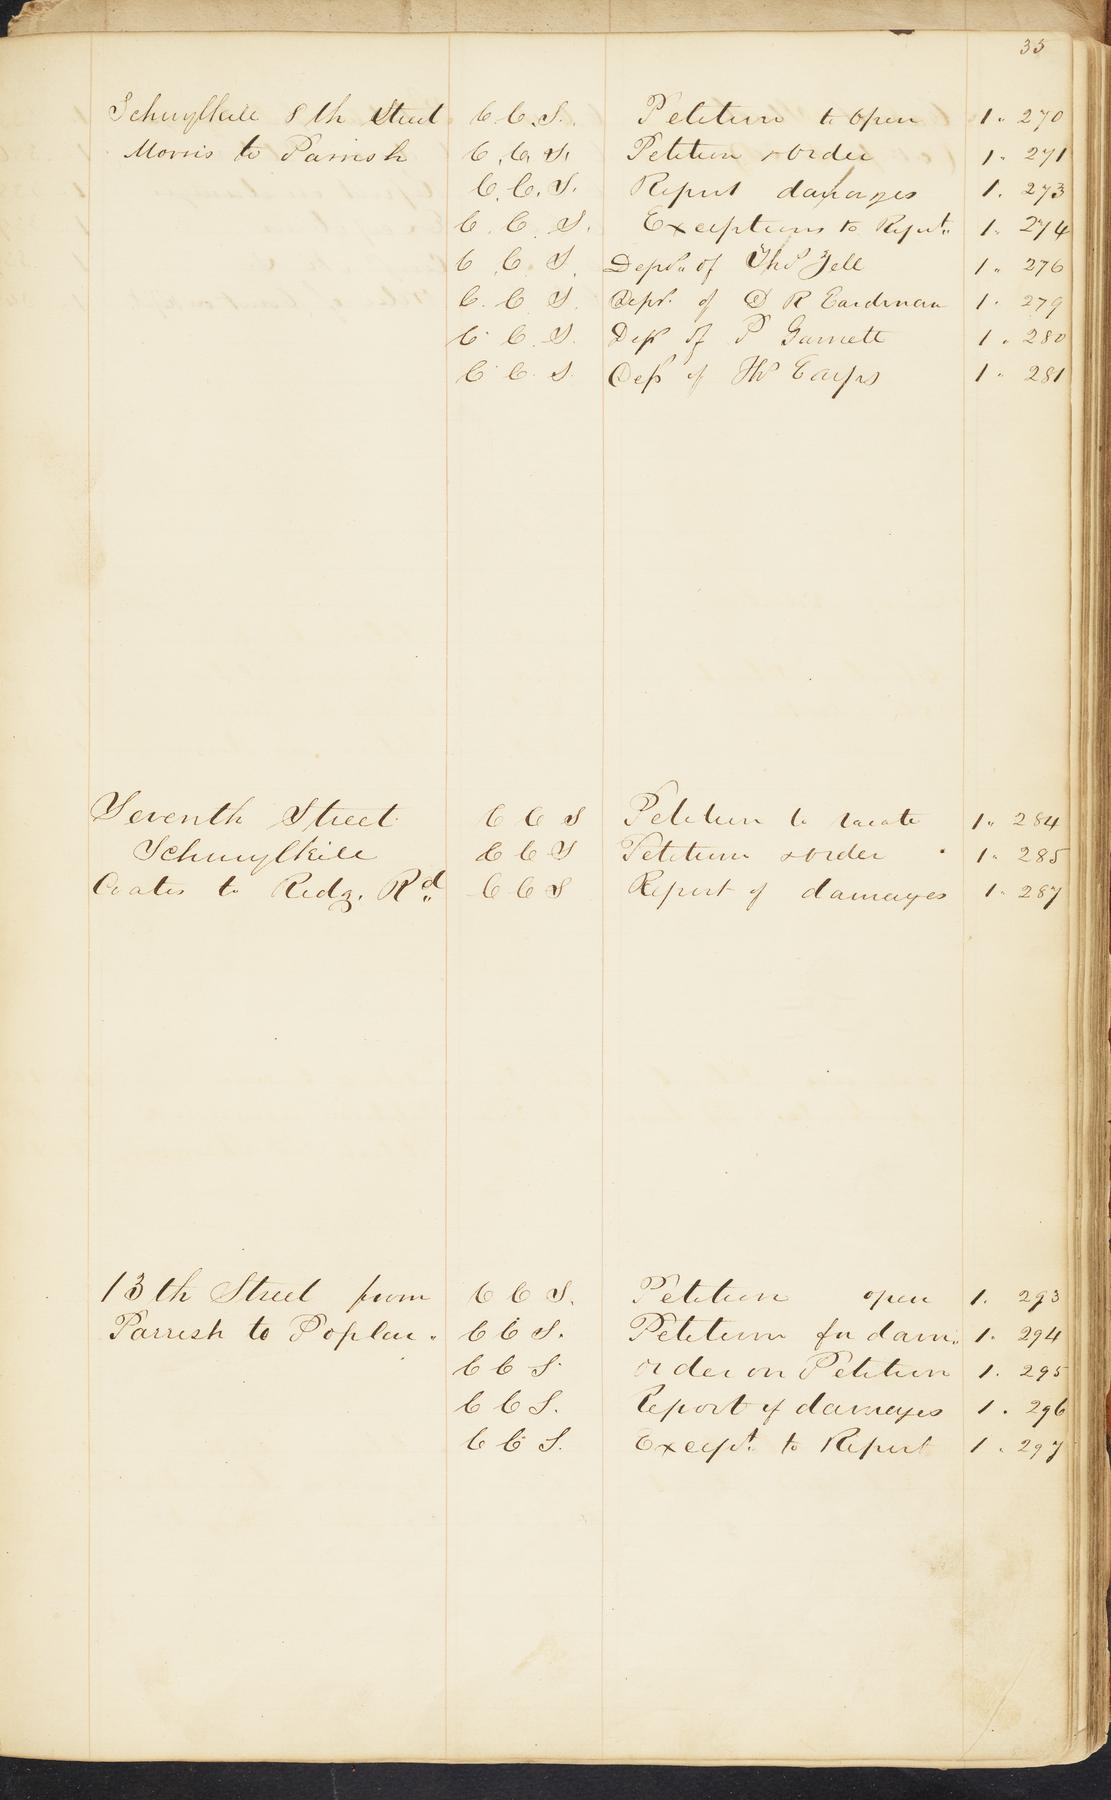 35
Schuylkill 8th Street C. C. S. Petition to open 1. 270
Morris to Parrish C. C. S. Petition & order 1. 271
C. C. S. Report damages 1. 273
C. C. S. Exceptions to Report 1. 274
C. C. S. Depn. of Thos Zell 1. 276
C. C. S. Depn. of D R Eardman 1. 279
C. C. S. Dep of P Garnett 1. 280
C. C. S. Dep of Thos Earps 1. 281
Seventh Street C C S Petition to vacate 1. 284
Schuylkill C C S Petition & order 1. 285
Coates to Ridg. Rd C C S Report of damages 1. 287
13th Street from C C S. Petition open 1. 293
Parrish to Poplar. C C S. Petition for dam. 1. 294
C C S order on Petition 1. 295
C C S. Report of damages 1. 296
C C S. Except. to Report 1. 297